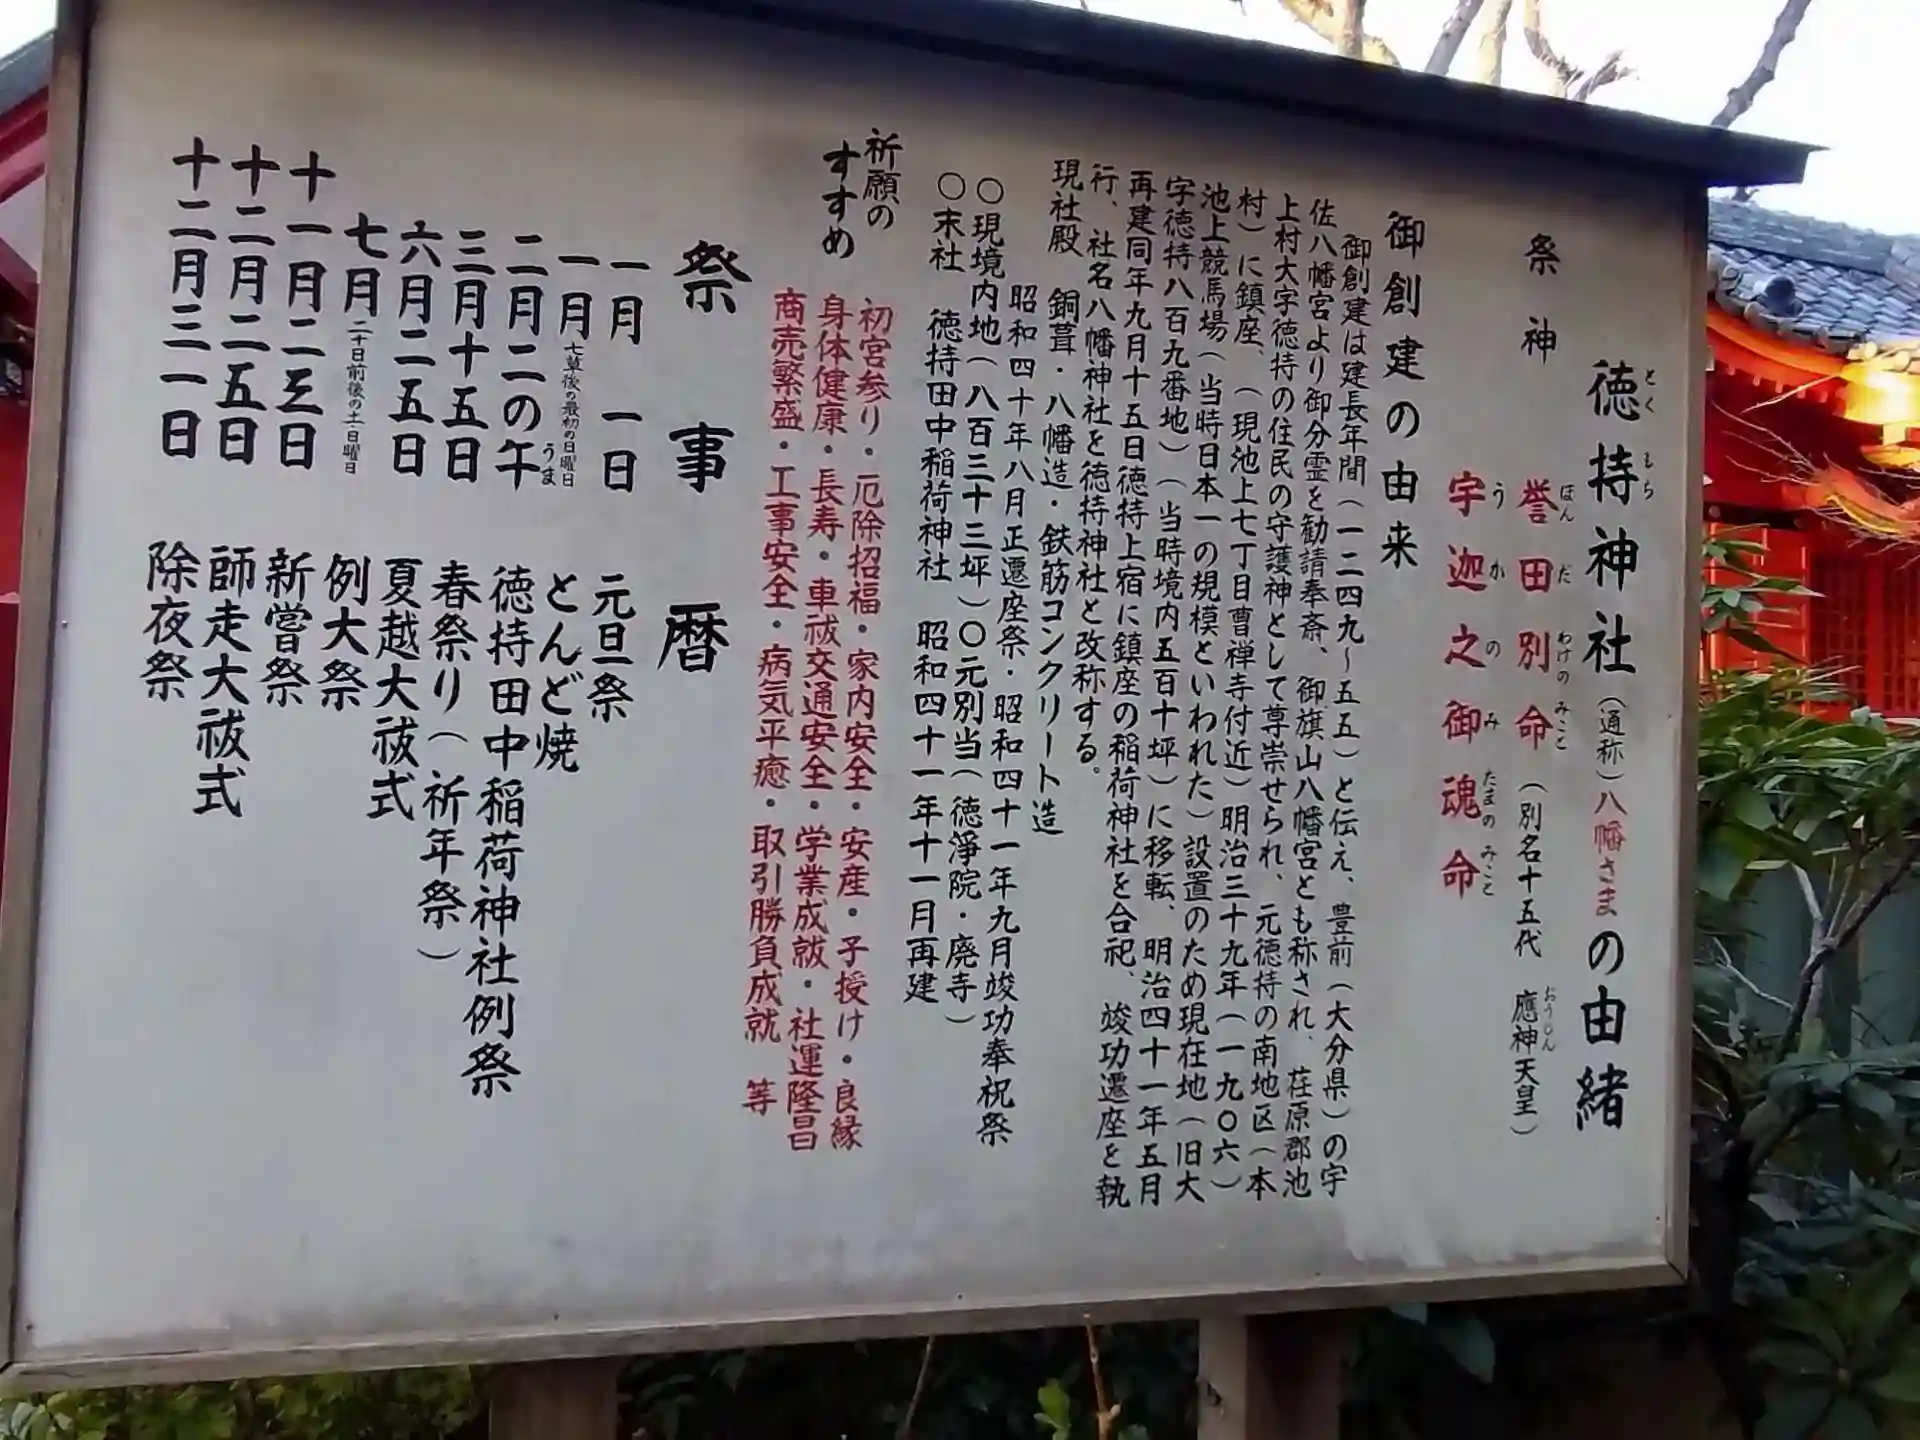 徳持神社(通称)八幡さまの由緒
祭神
誉田別命(別名十五代 應神天皇)
宇迦之御魂命
御創建の由来
御創建は建長年間(一二四九~五五)と伝え、豊前(大分県)の宇
佐八幡宮より御分霊を勧請奉斎、御旗山八幡宮とも称され、荏原郡池
上村大字徳持の住民の守護神として尊崇せられ、元徳持の南地区(本
村)に鎮座、(現池上七丁目曹禅寺付近)明治三十九年(一九〇六)
池上競馬場(当時日本一の規模といわれた)設置のため現在地(旧大
字徳持八百九番地)(当時境内五百十坪)に移転、明治四十一年五月
再建同年九月十五日徳持上宿に鎮座の稲荷神社を合祀、竣功遷座を執
行、社名八幡神社を徳持神社と改称する。
現社殿 銅葺・八幡造・鉄筋コンクリート造
昭和四十年八月正遷座祭・昭和四十一年九月竣功奉祝祭
〇現境内地(八百三十三坪)〇元別当(徳浄院・廃寺)
〇末社 徳持田中稲荷神社 昭和四十一年十一月再建
祈願の
すすめ
初宮参り・厄除招福・家内安全・安産・子授け・良縁
身体健康・長寿・車祓交通安全・学業成就・社運隆昌
商売繁盛・工事安全・病気平癒・取引勝負成就 等
祭事暦
一月 一日 元旦祭
一月七草後の最初の日曜日 とんど焼
二月二の午 徳持田中稲荷神社例祭
三月十五日 春祭り(祈年祭)
六月二五日 夏越大祓式
七月二十日前後の土日曜日 例大祭
十一月二三日 新嘗祭
十二月二五日 師走大祓式
十二月三一日 除夜祭